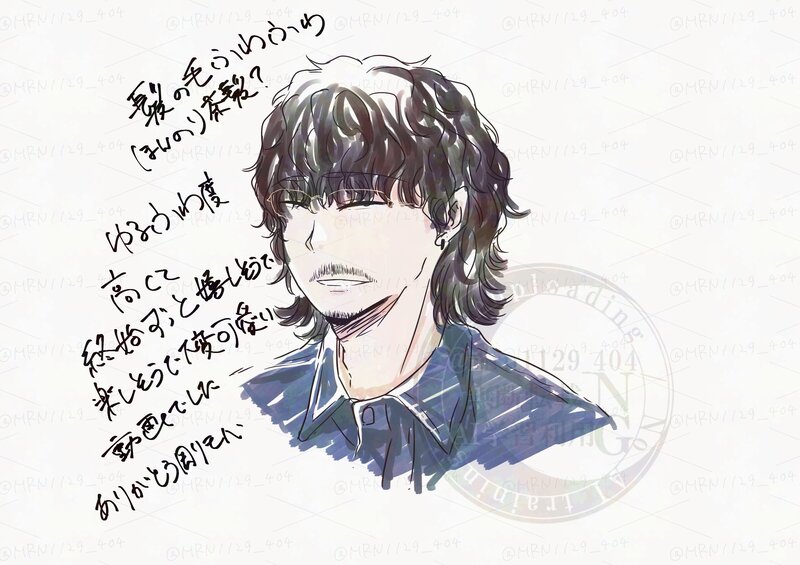 髪の毛ふわふわ
ほんのり茶髪?
ゆるふわ度
高くて
終始ずっと嬉しそうで
楽しそうで大変可愛い
動画でした
ありがとう周りてん
@MRN1129_404